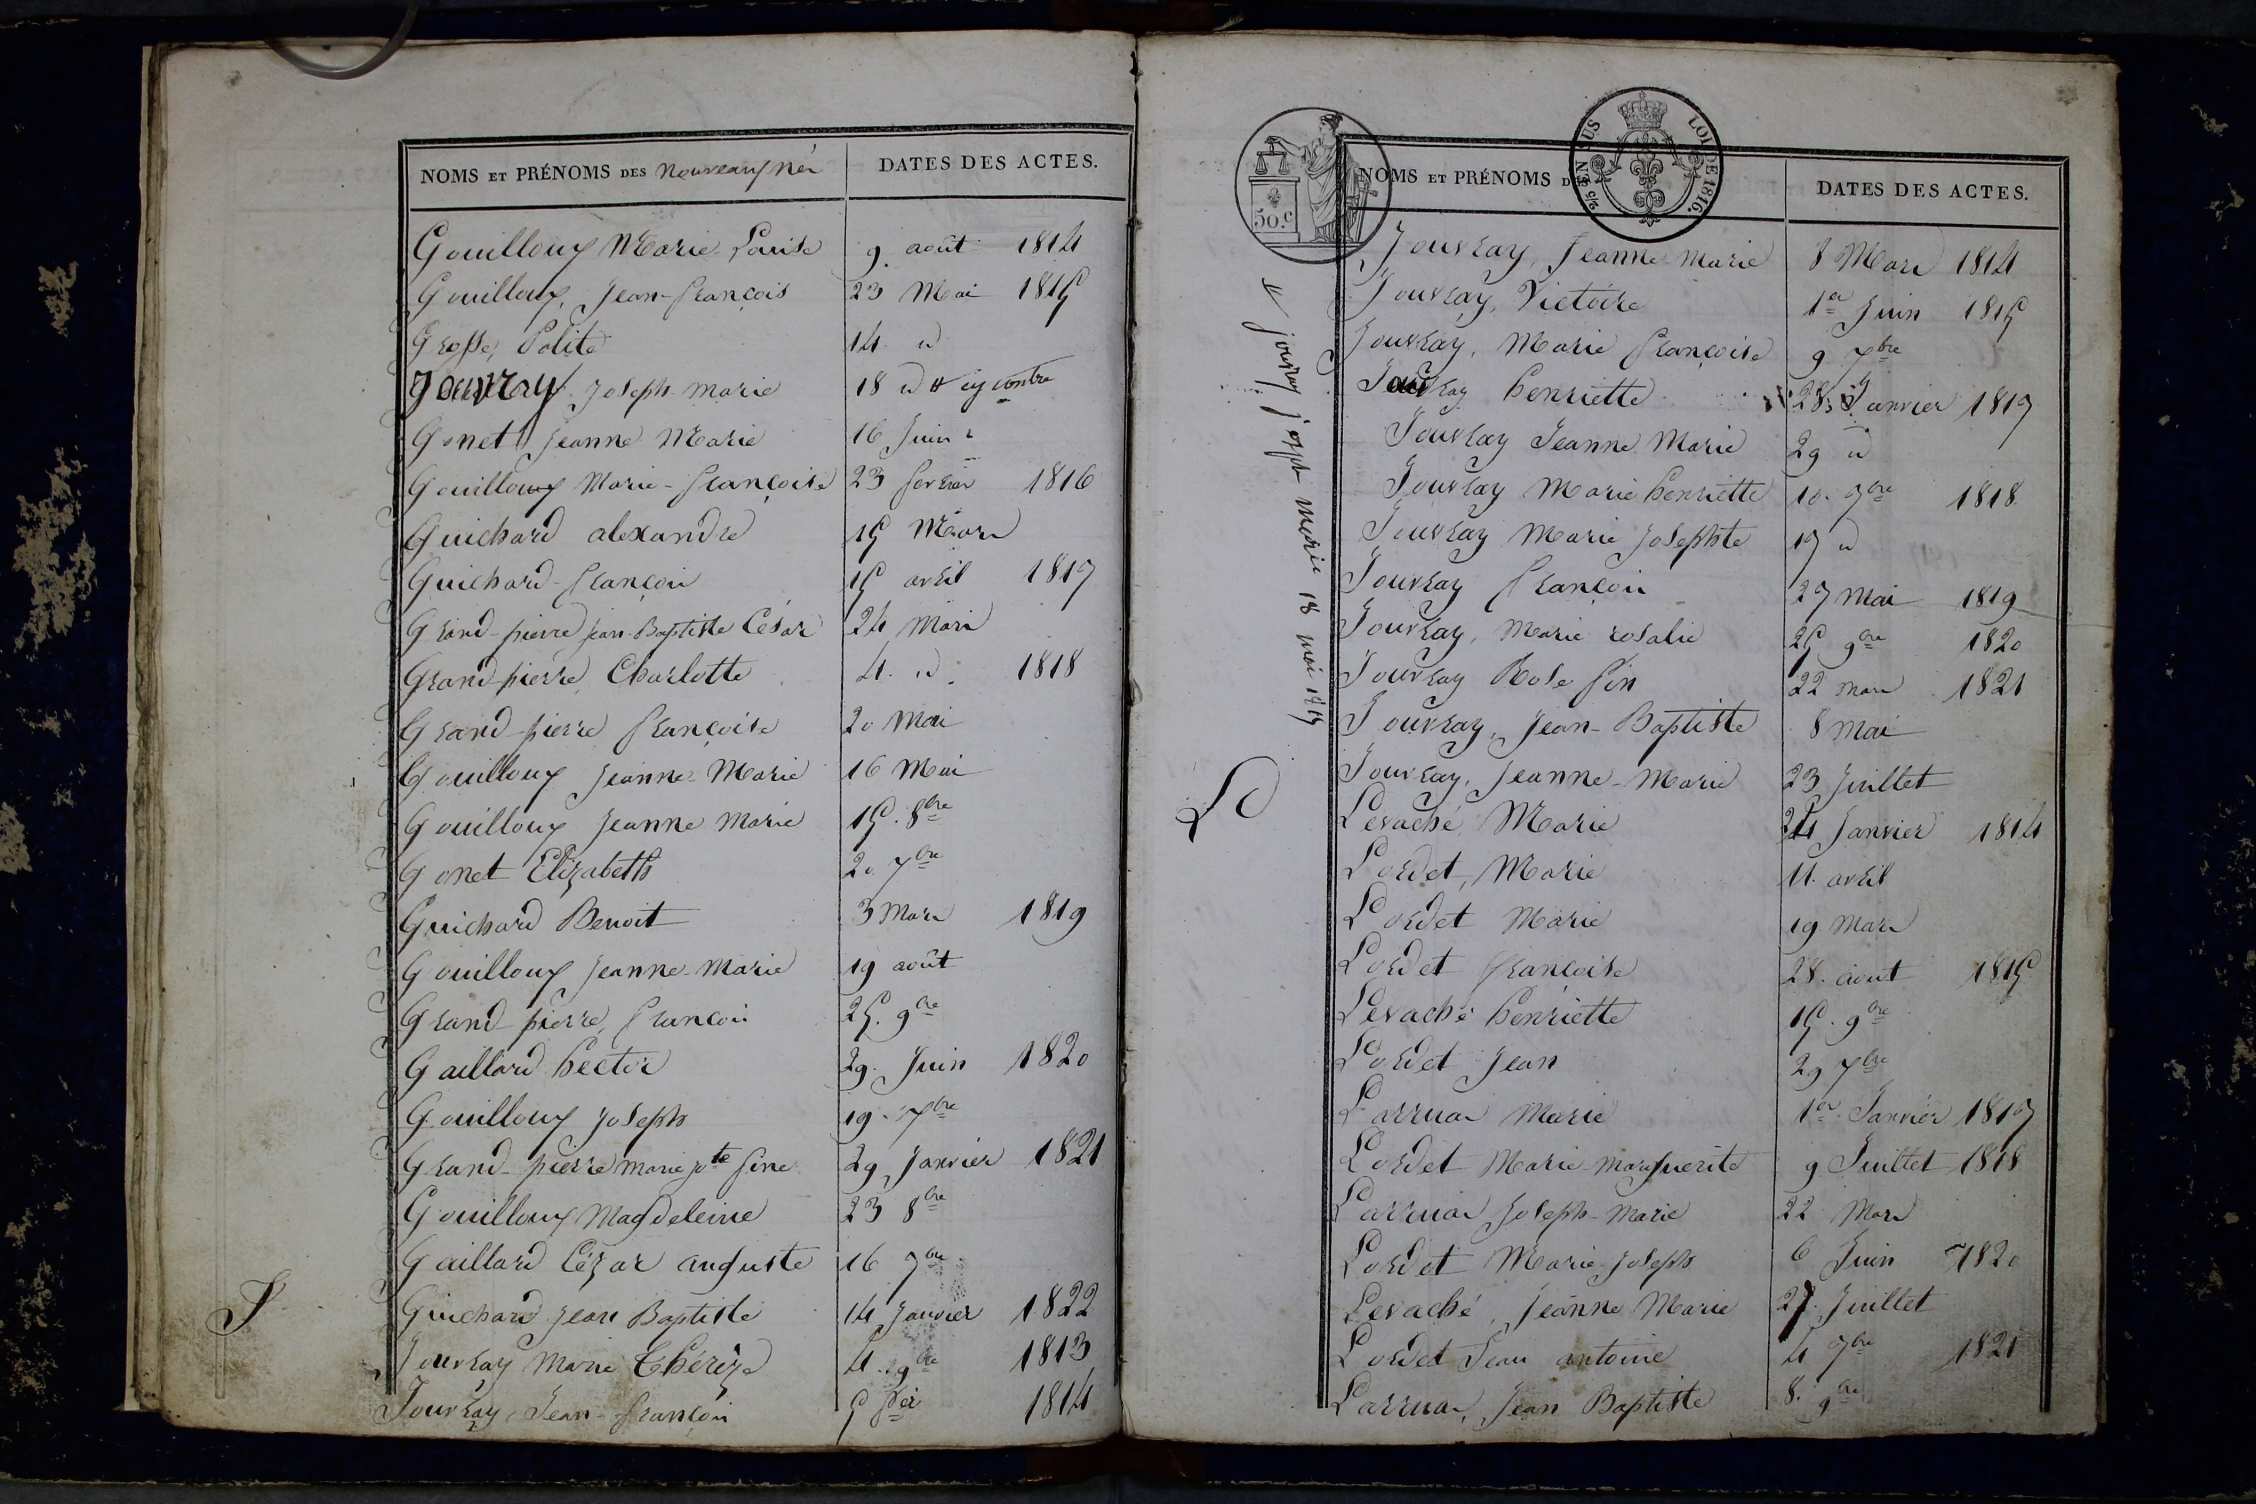 NOMS ET PRÉNOMS DES Nouveaux Nés DATES DES ACTES.
Gouilloux Marie Louise 9 août 1814
Gouilloux, Jean-françois 23 Mai 1815
Grosse, Polite 14 id
Jouvray Joseph marie 18 id # cy contre
Gonet Jeanne Marie 16 Juin
Gouilloux Marie-françoise 23 fevrier 1816
Guichard alexandre 15 Mars
Guichard-françois 15 avril 1817
Grand-pierre Jean-Baptiste César 24 Mars
Grand-pierre Charlotte 4 id 1818
Grand-pierre françoise 20 Mai
Gouilloux Jeanne Marie 16 Mai
Gouilloux Jeanne Marie 15. 8bre
Gonet Elizabeth 20 7bre
Guichard Benoit 3 Mars 1819
Gouilloux Jeanne-Marie 19 août
Grand pierre, françois 25. 9bre
Gaillard hector 29. Juin 1820
Gouilloux Joseph 19. 7bre
Grand-pierre marie Jote fine 29 Janvier 1821
Gouilloux Magdeleine 23 8bre
Gaillard Cézar auguste 16 9bre
Guichard Jean Baptiste 14 Janvier 1822
J
Jouvray Marie Thérèze 4. 9bre 1813
Jouvray, Jean-françois 5 1814
50.C
LOI DE 1816.
NOMS ET PRÉNOMS DES DATES DES ACTES.
# jouvray joseph marie 18 mai 1815
Jouvray, Jeanne Marie 8 Mars 1814
Jouvray, Victoire 1er Juin 1815
Jouvray, Marie françoise 9 7bre
Jouvray henriette 28 Janvier 1817
Jouvray Jeanne Marie 29 id
Jouvray Marie henriette 10. 9bre 1818
Jouvray Marie Josephte 17 id
Jouvray françois 27 Mai 1819
Jouvray, Marie rosalie 25 9bre 1820
Jouvray Rose fin 22 mars 1821
Jouvray, Jean-Baptiste 8 Mai
Jouvray, Jeanne-Marie 23 Juillet
L
Levaché Marie 24 Janvier 1814
Lordet, Marie 11 avril
Lordet Marie 19 Mars
Lordet françoise 28. aout 1815
Levaché henriette 15. 9bre
Lordet Jean 29 7bre
Larruas Marie 1er Janvier 1817
Lordet Marie Marguerite 9 Juillet 1818
Larruas Joseph-Marie 22 Mars
Lordet Marie-Joseph 6 Juin 1820
Levaché, Jeanne Marie 27. Juillet
Lordet Jean antoine 4 9bre 1821
Larruas, Jean Baptiste 8. 9bre